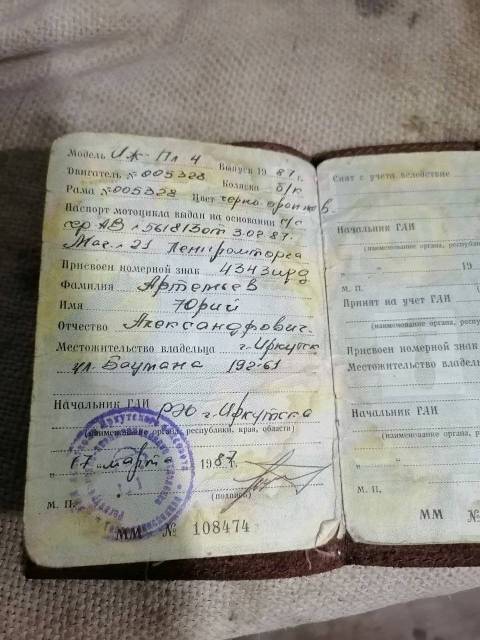 Модель Иж-Пл 4 Выпуск 1987 г.
Двигатель № 005328 Коляска б/к
Рама № 005328 Цвет черно-оранжев.
Паспорт мотоцикла выдан на основании с/с
сер АВ № 561813 от 3.02.87.
Маг. 21 Ленпромторга
Присвоен номерной знак 4343ирд
Фамилия Артемьев
Имя Юрий
Отчество Александрович.
Местожительство владельца г. Иркутск
ул. Баумана 192-61
Начальник ГАИ РЭО г. Иркутска
(наименование органа, республики, края, области)
„17" марта 1987 г.
М. П. (подпись)
ММ № 108474
Снят с учета вследствие
Начальник ГАИ
(наименование органа, республи
„ " 19
М. П.
Принят на учет ГАИ
(наименование органа, республ
Присвоен номерной знак
Местожительство владель
Начальник ГАИ
(наименование органа, р
„ "
М. П.
ММ №